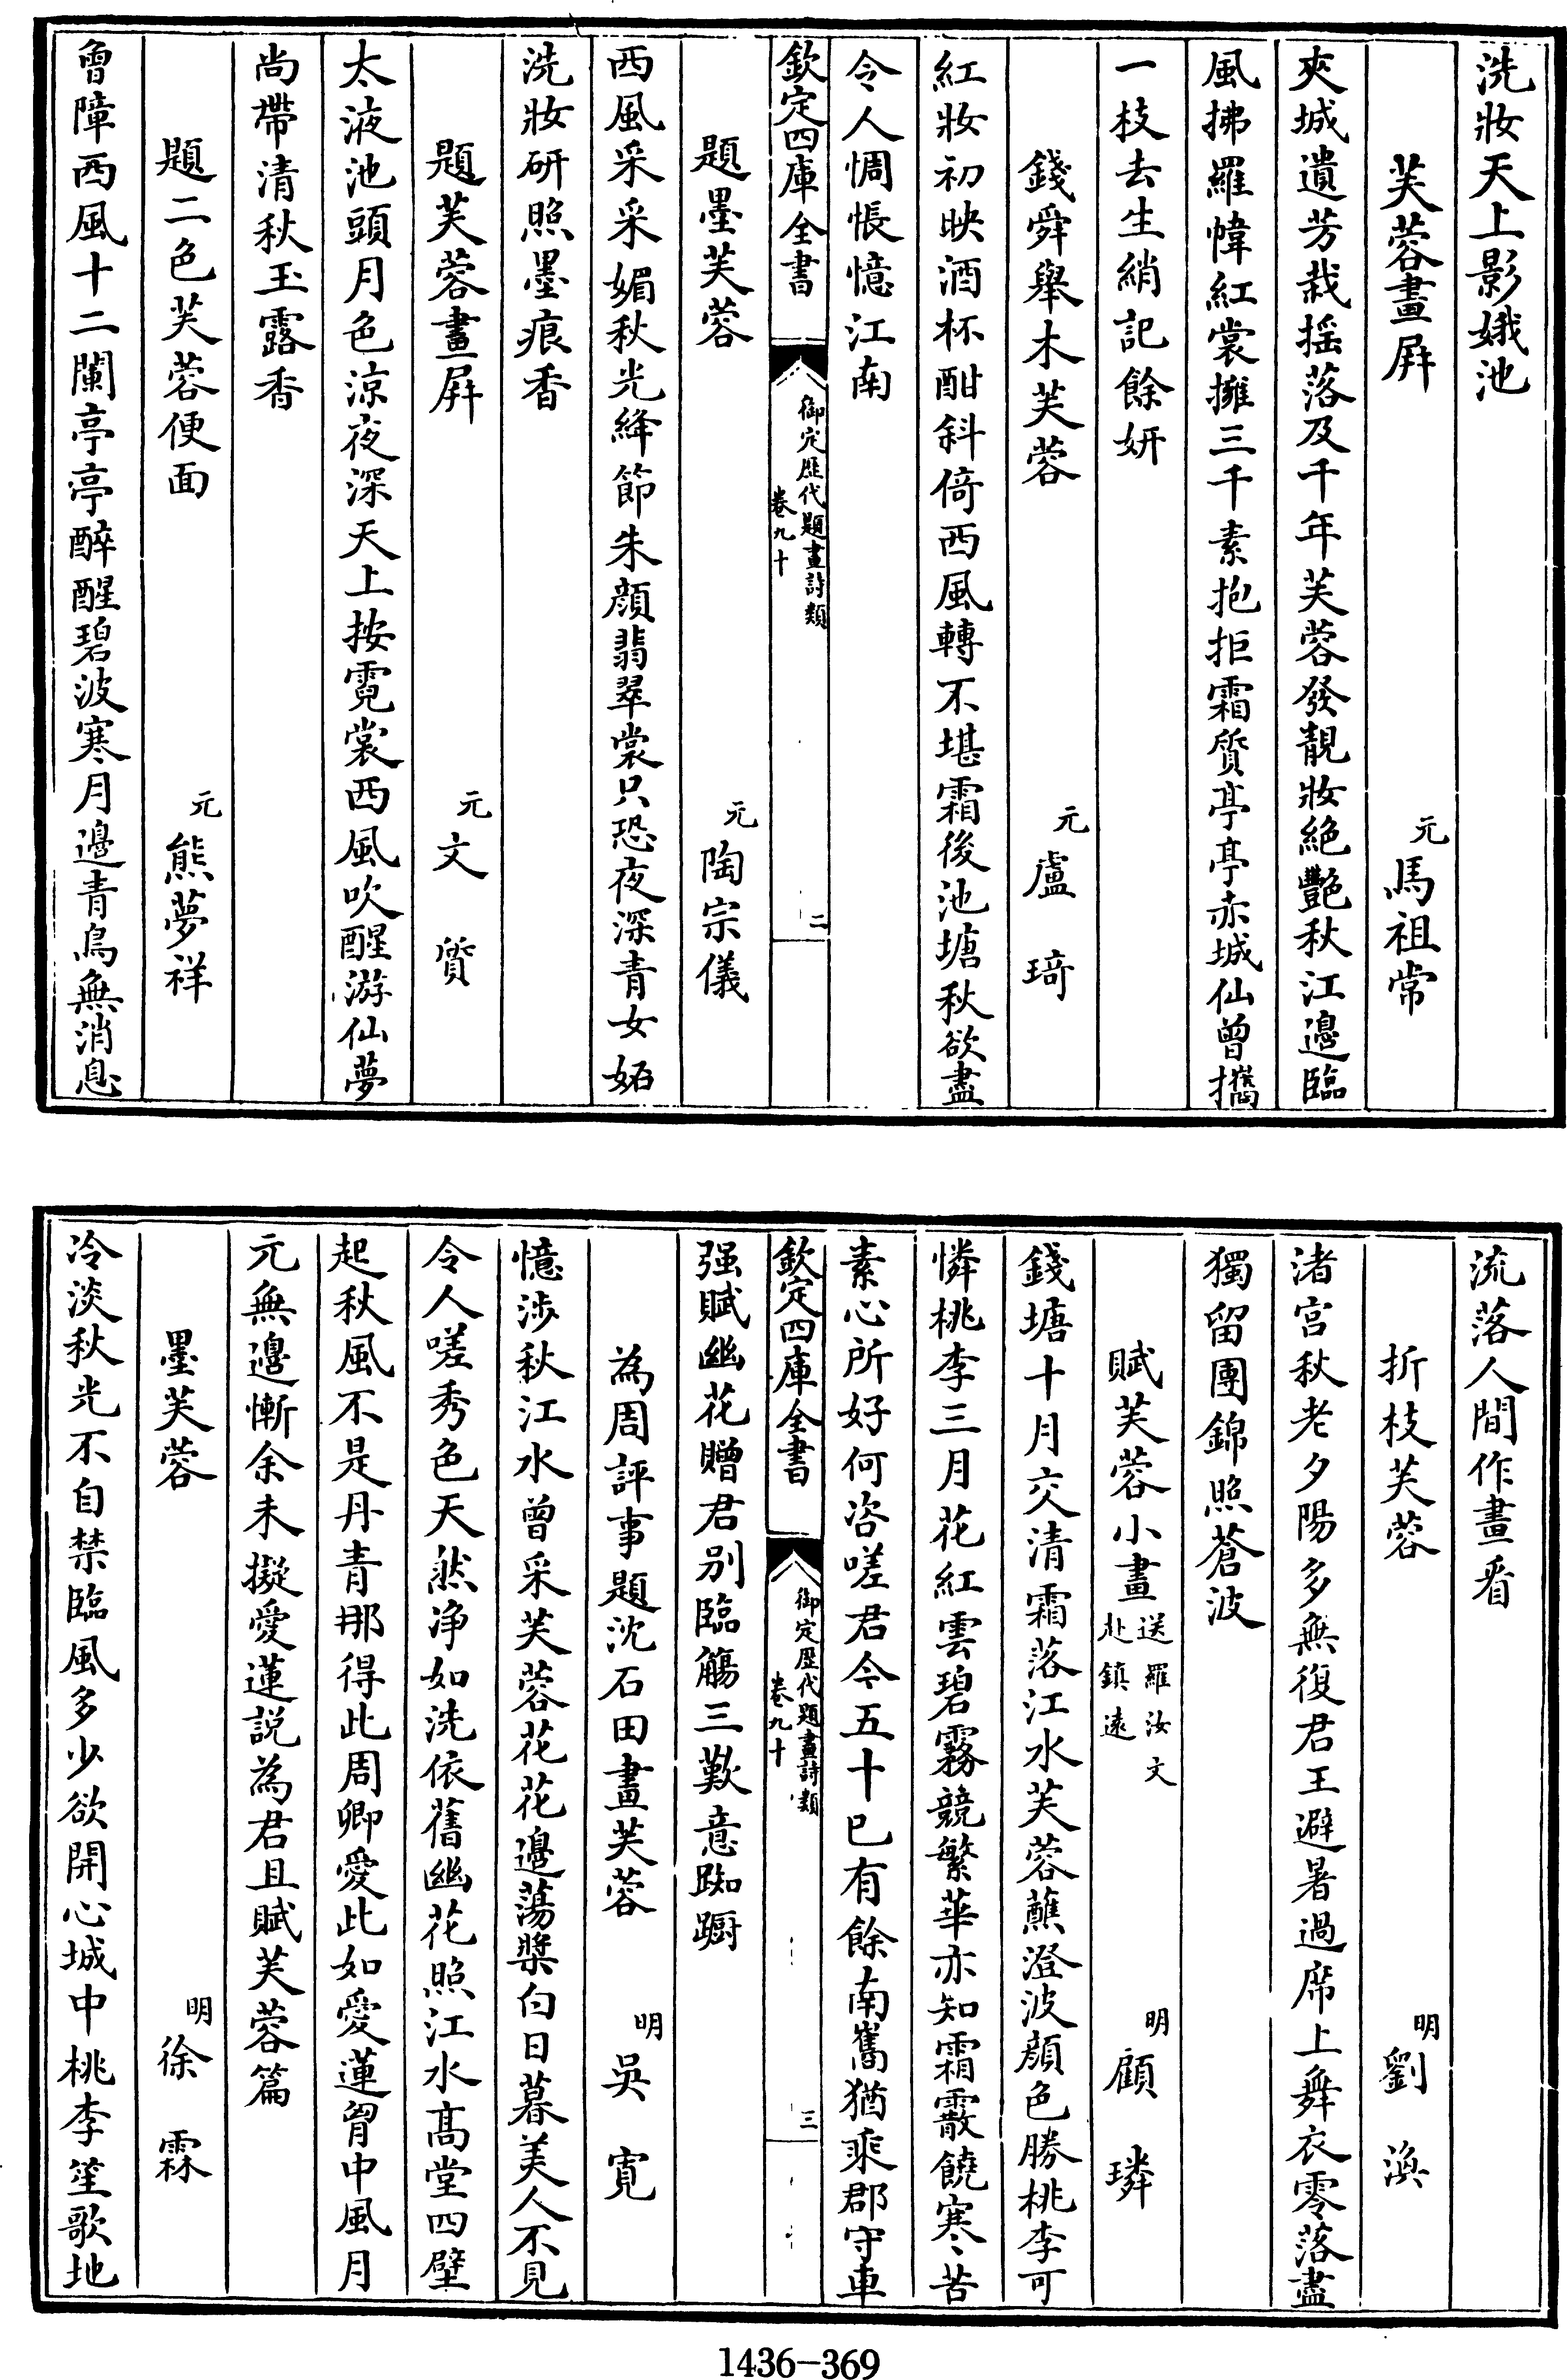 洗妝天上影娥池
芙蓉畫屏　元馬祖常
夾城遺芳栽揺落及千年芙蓉發靚妝絶艷秋江邊臨
風拂羅幃紅裳擁三千素抱拒霜質亭亭赤城仙曾攜
一枝去生綃記餘妍
錢舜舉木芙蓉　元盧琦
紅妝初映酒杯酣斜倚西風轉不堪霜後池塘秋欲盡
令人惆悵憶江南
欽定四庫全書　御定歷代題畫詩類　卷九十　二
題墨芙蓉　元陶宗儀
西風采采媚秋光絳節朱顔翡翠裳只恐夜深青女妬
洗妝研照墨痕香
題芙蓉畫屏　元文質
太液池頭月色凉夜深天上按霓裳西風吹醒游仙夢
尚帶清秋玉露香
題二色芙蓉便面　元熊夢祥
曾障西風十二闌亭亭醉醒碧波寒月邊青鳥無消息
流落人間作畫看
折枝芙蓉　明劉渙
渚宫秋老夕陽多無復君王避暑過席上舞衣零落盡
獨留團錦照蒼波
賦芙蓉小畫送羅汝文赴鎮遠　明顧璘
錢塘十月交清霜落江水芙蓉蘸澄波顔色勝桃李可
憐桃李三月花紅雲碧霧競繁華亦知霜霰饒寒苦
素心所好何咨嗟君今五十已有餘南嶲猶乘郡守車
欽定四庫全書　御定歷代題畫詩類　卷九十　三
强賦幽花贈君别臨觴三歎意踟蹰
為周評事題沈石田畫芙蓉　明吳寛
憶涉秋江水曾采芙蓉花花邊蕩槳白日暮美人不見
令人嗟秀色天然净如洗依舊幽花照江水髙堂四壁
起秋風不是丹青那得此周卿愛此如愛蓮胷中風月
元無邊慚余未擬愛蓮説為君且賦芙蓉篇
墨芙蓉　明徐霖
冷淡秋光不自禁臨風多少欲開心城中桃李笙歌地
1436-369